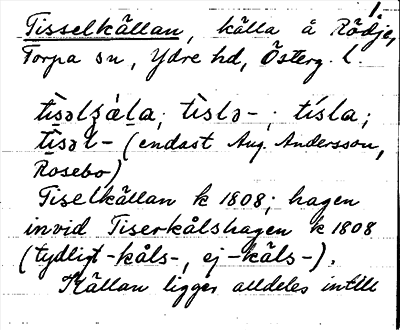 1.
Tisselkällan, källa å Rödje,
Torpa sn, Ydre hd, Österg. l.
tìsəlʒäla; tìslə-; tísla;
tìsəl- (endast Aug. Andersson,
Rosebo)
Tiselkällan k 1808; hagen
invid Tiserkålshagen k 1808
(tydligt -kåls-, ej -käls-).
Källan ligger alldeles intill